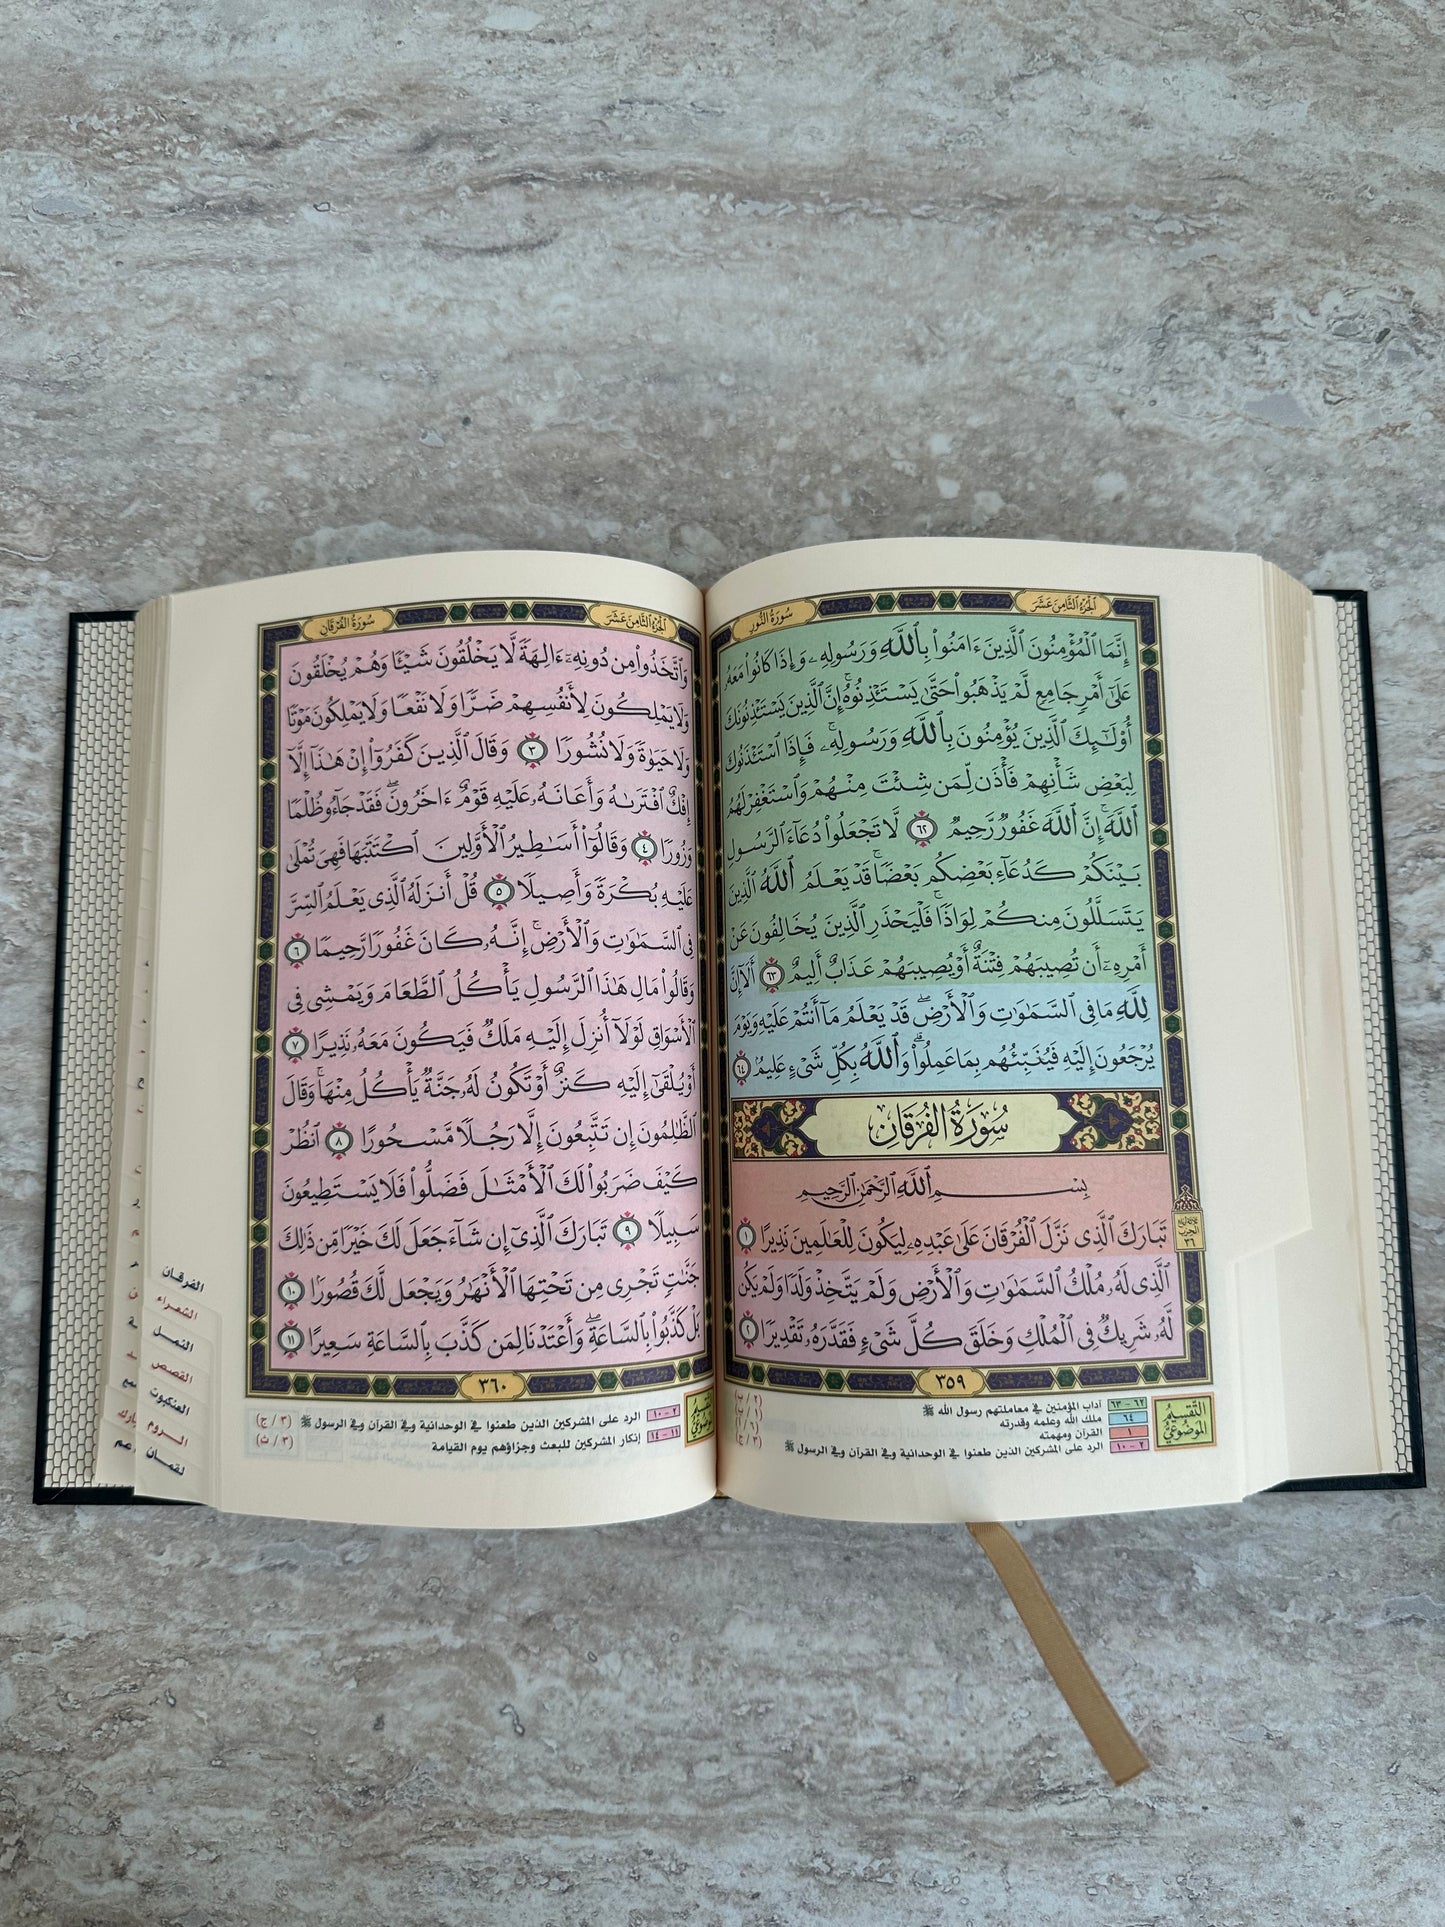 الجزء الثامن عشر
سورة النور
إِنَّمَا ٱلْمُؤْمِنُونَ ٱلَّذِينَ ءَامَنُوا۟ بِٱللَّهِ وَرَسُولِهِۦ وَإِذَا كَانُوا۟ مَعَهُۥ
عَلَىٰٓ أَمْرٍ جَامِعٍ لَّمْ يَذْهَبُوا۟ حَتَّىٰ يَسْتَـْٔذِنُوهُ ۚ إِنَّ ٱلَّذِينَ يَسْتَـْٔذِنُونَكَ
أُو۟لَـٰٓئِكَ ٱلَّذِينَ يُؤْمِنُونَ بِٱللَّهِ وَرَسُولِهِۦ ۚ فَإِذَا ٱسْتَـْٔذَنُوكَ
لِبَعْضِ شَأْنِهِمْ فَأْذَن لِّمَن شِئْتَ مِنْهُمْ وَٱسْتَغْفِرْ لَهُمُ
ٱللَّهَ ۚ إِنَّ ٱللَّهَ غَفُورٌ رَّحِيمٌ ٦٢ لَّا تَجْعَلُوا۟ دُعَآءَ ٱلرَّسُولِ
بَيْنَكُمْ كَدُعَآءِ بَعْضِكُم بَعْضًا ۚ قَدْ يَعْلَمُ ٱللَّهُ ٱلَّذِينَ
يَتَسَلَّلُونَ مِنكُمْ لِوَاذًا ۚ فَلْيَحْذَرِ ٱلَّذِينَ يُخَالِفُونَ عَنْ
أَمْرِهِۦٓ أَن تُصِيبَهُمْ فِتْنَةٌ أَوْ يُصِيبَهُمْ عَذَابٌ أَلِيمٌ ٦٣ أَلَآ إِنَّ
لِلَّهِ مَا فِى ٱلسَّمَـٰوَٰتِ وَٱلْأَرْضِ ۖ قَدْ يَعْلَمُ مَآ أَنتُمْ عَلَيْهِ وَيَوْمَ
يُرْجَعُونَ إِلَيْهِ فَيُنَبِّئُهُم بِمَا عَمِلُوا۟ ۗ وَٱللَّهُ بِكُلِّ شَىْءٍ عَلِيمٌ ٦٤
سُورَةُ الْفُرْقَانِ
بِسْمِ ٱللَّهِ ٱلرَّحْمَـٰنِ ٱلرَّحِيمِ
تَبَارَكَ ٱلَّذِى نَزَّلَ ٱلْفُرْقَانَ عَلَىٰ عَبْدِهِۦ لِيَكُونَ لِلْعَـٰلَمِينَ نَذِيرًا ١
ٱلَّذِى لَهُۥ مُلْكُ ٱلسَّمَـٰوَٰتِ وَٱلْأَرْضِ وَلَمْ يَتَّخِذْ وَلَدًا وَلَمْ يَكُن
لَّهُۥ شَرِيكٌ فِى ٱلْمُلْكِ وَخَلَقَ كُلَّ شَىْءٍ فَقَدَّرَهُۥ تَقْدِيرًا ٢
الحزب
٣٦
٣٥٩
التقسيم
الموضوعي
٦٢ - ٦٣ آداب المؤمنين في معاملتهم رسول الله ﷺ
٦٤ ملك الله وعلمه وقدرته
١ القرآن ومهمته
٢ - ١٠ الرد على المشركين الذين طعنوا في الوحدانية وفي القرآن وفي الرسول ﷺ
الجزء الثامن عشر
سورة الفرقان
وَٱتَّخَذُوا۟ مِن دُونِهِۦٓ ءَالِهَةً لَّا يَخْلُقُونَ شَيْـًٔا وَهُمْ يُخْلَقُونَ
وَلَا يَمْلِكُونَ لِأَنفُسِهِمْ ضَرًّا وَلَا نَفْعًا وَلَا يَمْلِكُونَ مَوْتًا
وَلَا حَيَوٰةً وَلَا نُشُورًا ٣ وَقَالَ ٱلَّذِينَ كَفَرُوٓا۟ إِنْ هَـٰذَآ إِلَّآ
إِفْكٌ ٱفْتَرَىٰهُ وَأَعَانَهُۥ عَلَيْهِ قَوْمٌ ءَاخَرُونَ ۖ فَقَدْ جَآءُو ظُلْمًا
وَزُورًا ٤ وَقَالُوٓا۟ أَسَـٰطِيرُ ٱلْأَوَّلِينَ ٱكْتَتَبَهَا فَهِىَ تُمْلَىٰ
عَلَيْهِ بُكْرَةً وَأَصِيلًا ٥ قُلْ أَنزَلَهُ ٱلَّذِى يَعْلَمُ ٱلسِّرَّ
فِى ٱلسَّمَـٰوَٰتِ وَٱلْأَرْضِ ۚ إِنَّهُۥ كَانَ غَفُورًا رَّحِيمًا ٦
وَقَالُوا۟ مَالِ هَـٰذَا ٱلرَّسُولِ يَأْكُلُ ٱلطَّعَامَ وَيَمْشِى فِى
ٱلْأَسْوَاقِ ۙ لَوْلَآ أُنزِلَ إِلَيْهِ مَلَكٌ فَيَكُونَ مَعَهُۥ نَذِيرًا ٧
أَوْ يُلْقَىٰٓ إِلَيْهِ كَنزٌ أَوْ تَكُونُ لَهُۥ جَنَّةٌ يَأْكُلُ مِنْهَا ۚ وَقَالَ
ٱلظَّـٰلِمُونَ إِن تَتَّبِعُونَ إِلَّا رَجُلًا مَّسْحُورًا ٨ ٱنظُرْ
كَيْفَ ضَرَبُوا۟ لَكَ ٱلْأَمْثَـٰلَ فَضَلُّوا۟ فَلَا يَسْتَطِيعُونَ
سَبِيلًا ٩ تَبَارَكَ ٱلَّذِىٓ إِن شَآءَ جَعَلَ لَكَ خَيْرًا مِّن ذَٰلِكَ
جَنَّـٰتٍ تَجْرِى مِن تَحْتِهَا ٱلْأَنْهَـٰرُ وَيَجْعَل لَّكَ قُصُورًۢا ١٠
بَلْ كَذَّبُوا۟ بِٱلسَّاعَةِ ۖ وَأَعْتَدْنَا لِمَن كَذَّبَ بِٱلسَّاعَةِ سَعِيرًا ١١
٣٦٠
التقسيم
الموضوعي
٢ - ١٠ الرد على المشركين الذين طعنوا في الوحدانية وفي القرآن وفي الرسول ﷺ (٣ / ج)
١١ - ١٤ إنكار المشركين للبعث وجزاؤهم يوم القيامة (٣ / ث)
الفرقان
الشعراء
النمل
القصص
العنكبوت
الروم
لقمان